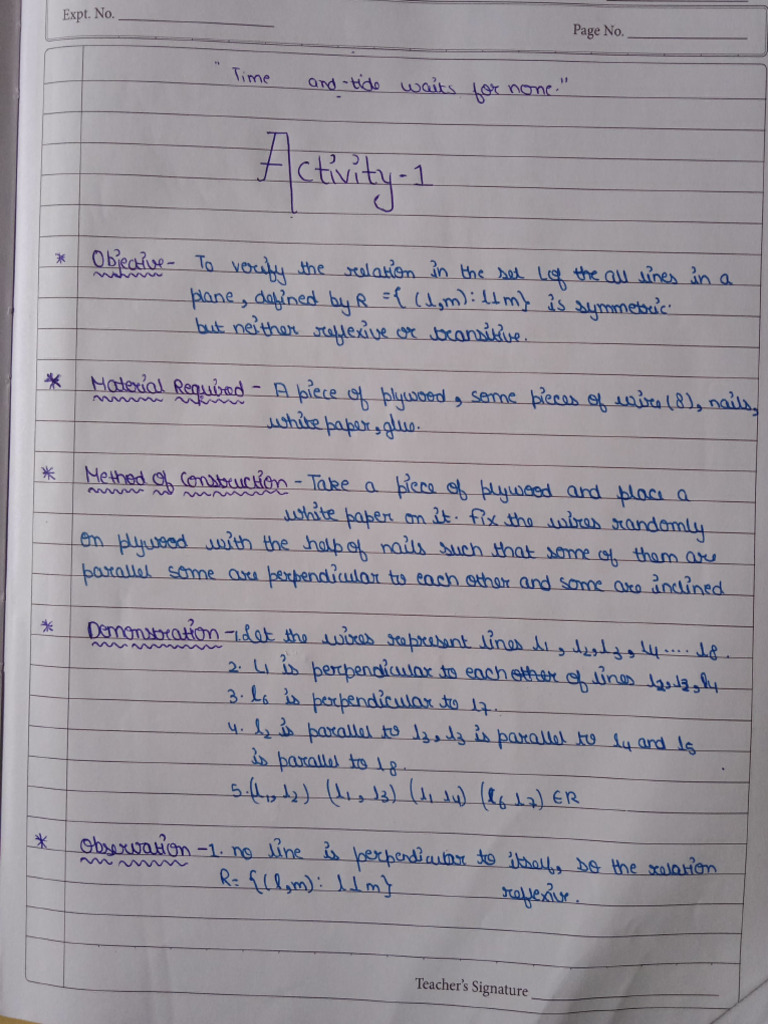 Expt. No.
Page No.
"Time and-tide waits for none."
Activity-1
* Objective- To verify the relation in the set L of the all lines in a
plane, defined by R = { (l,m): l⊥m} is symmetric
but neither reflexive or transitive.
* Material Required - A piece of plywood, some pieces of wire (8), nails,
white paper, glue.
* Method of Construction - Take a piece of plywood and place a
white paper on it. fix the wires randomly
on plywood with the help of nails such that some of them are
parallel some are perpendicular to each other and some are inclined
* Demonstration -1. Let the wires represent lines l1, l2, l3, l4 .... l8.
2. L1 is perpendicular to each other of lines l2, l3, l4
3. l6 is perpendicular to l7.
4. l2 is parallel to l3, l3 is parallel to l4 and l5
is parallel to l8.
5. (l1, l2) (l1, l3) (l1 l4) (l6 l7) ∈R
* Observation -1. no line is perpendicular to itself, so the relation
R= {(l,m): l⊥m} reflexive.
Teacher's Signature